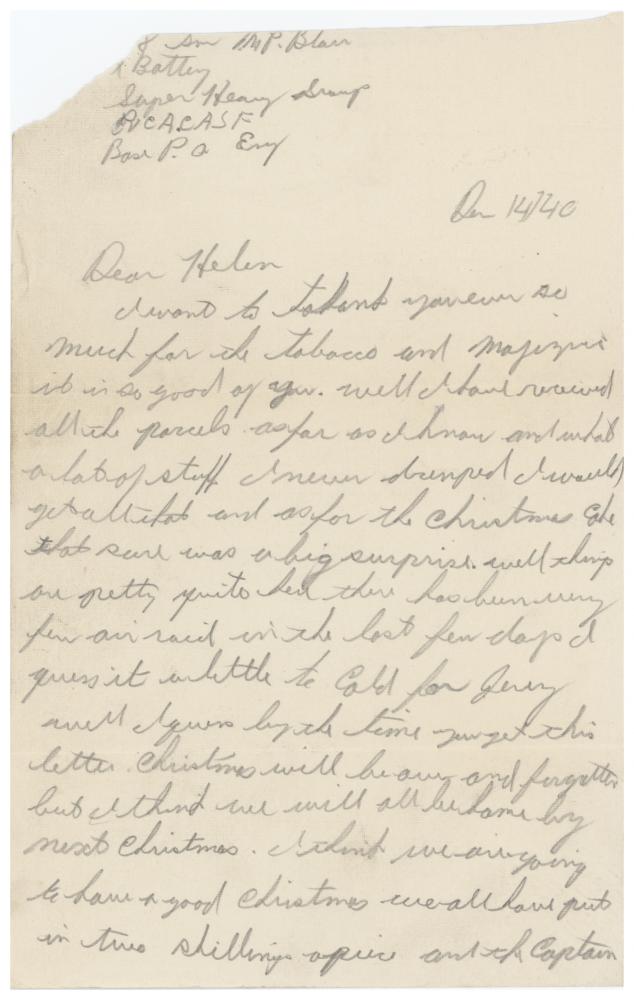 & Sm M P. Blair
x Battery
Super Heavy Group
RCACASF
Base P. O Eng
Dec 14/40
Dear Helen
I want to tohank you ever so
much for the tobacco and majiznes
it is so good of you. well I have received
all the parcels as far as I know and what
a lot of stuff I never dremped I would
get all that and as for the Christmas Cake
that sure was a big surprise. well things
are pretty quite here there has been very
few air raid in the last few days I
guess it a little to Cold for Jerry
well I guess by the time you get this
letter Christmas will be over and forgotten
but I think we will all be home by
next Christmas. I think we are going
to have a good Christmas we all have put
in two shillings apiece and the Captain